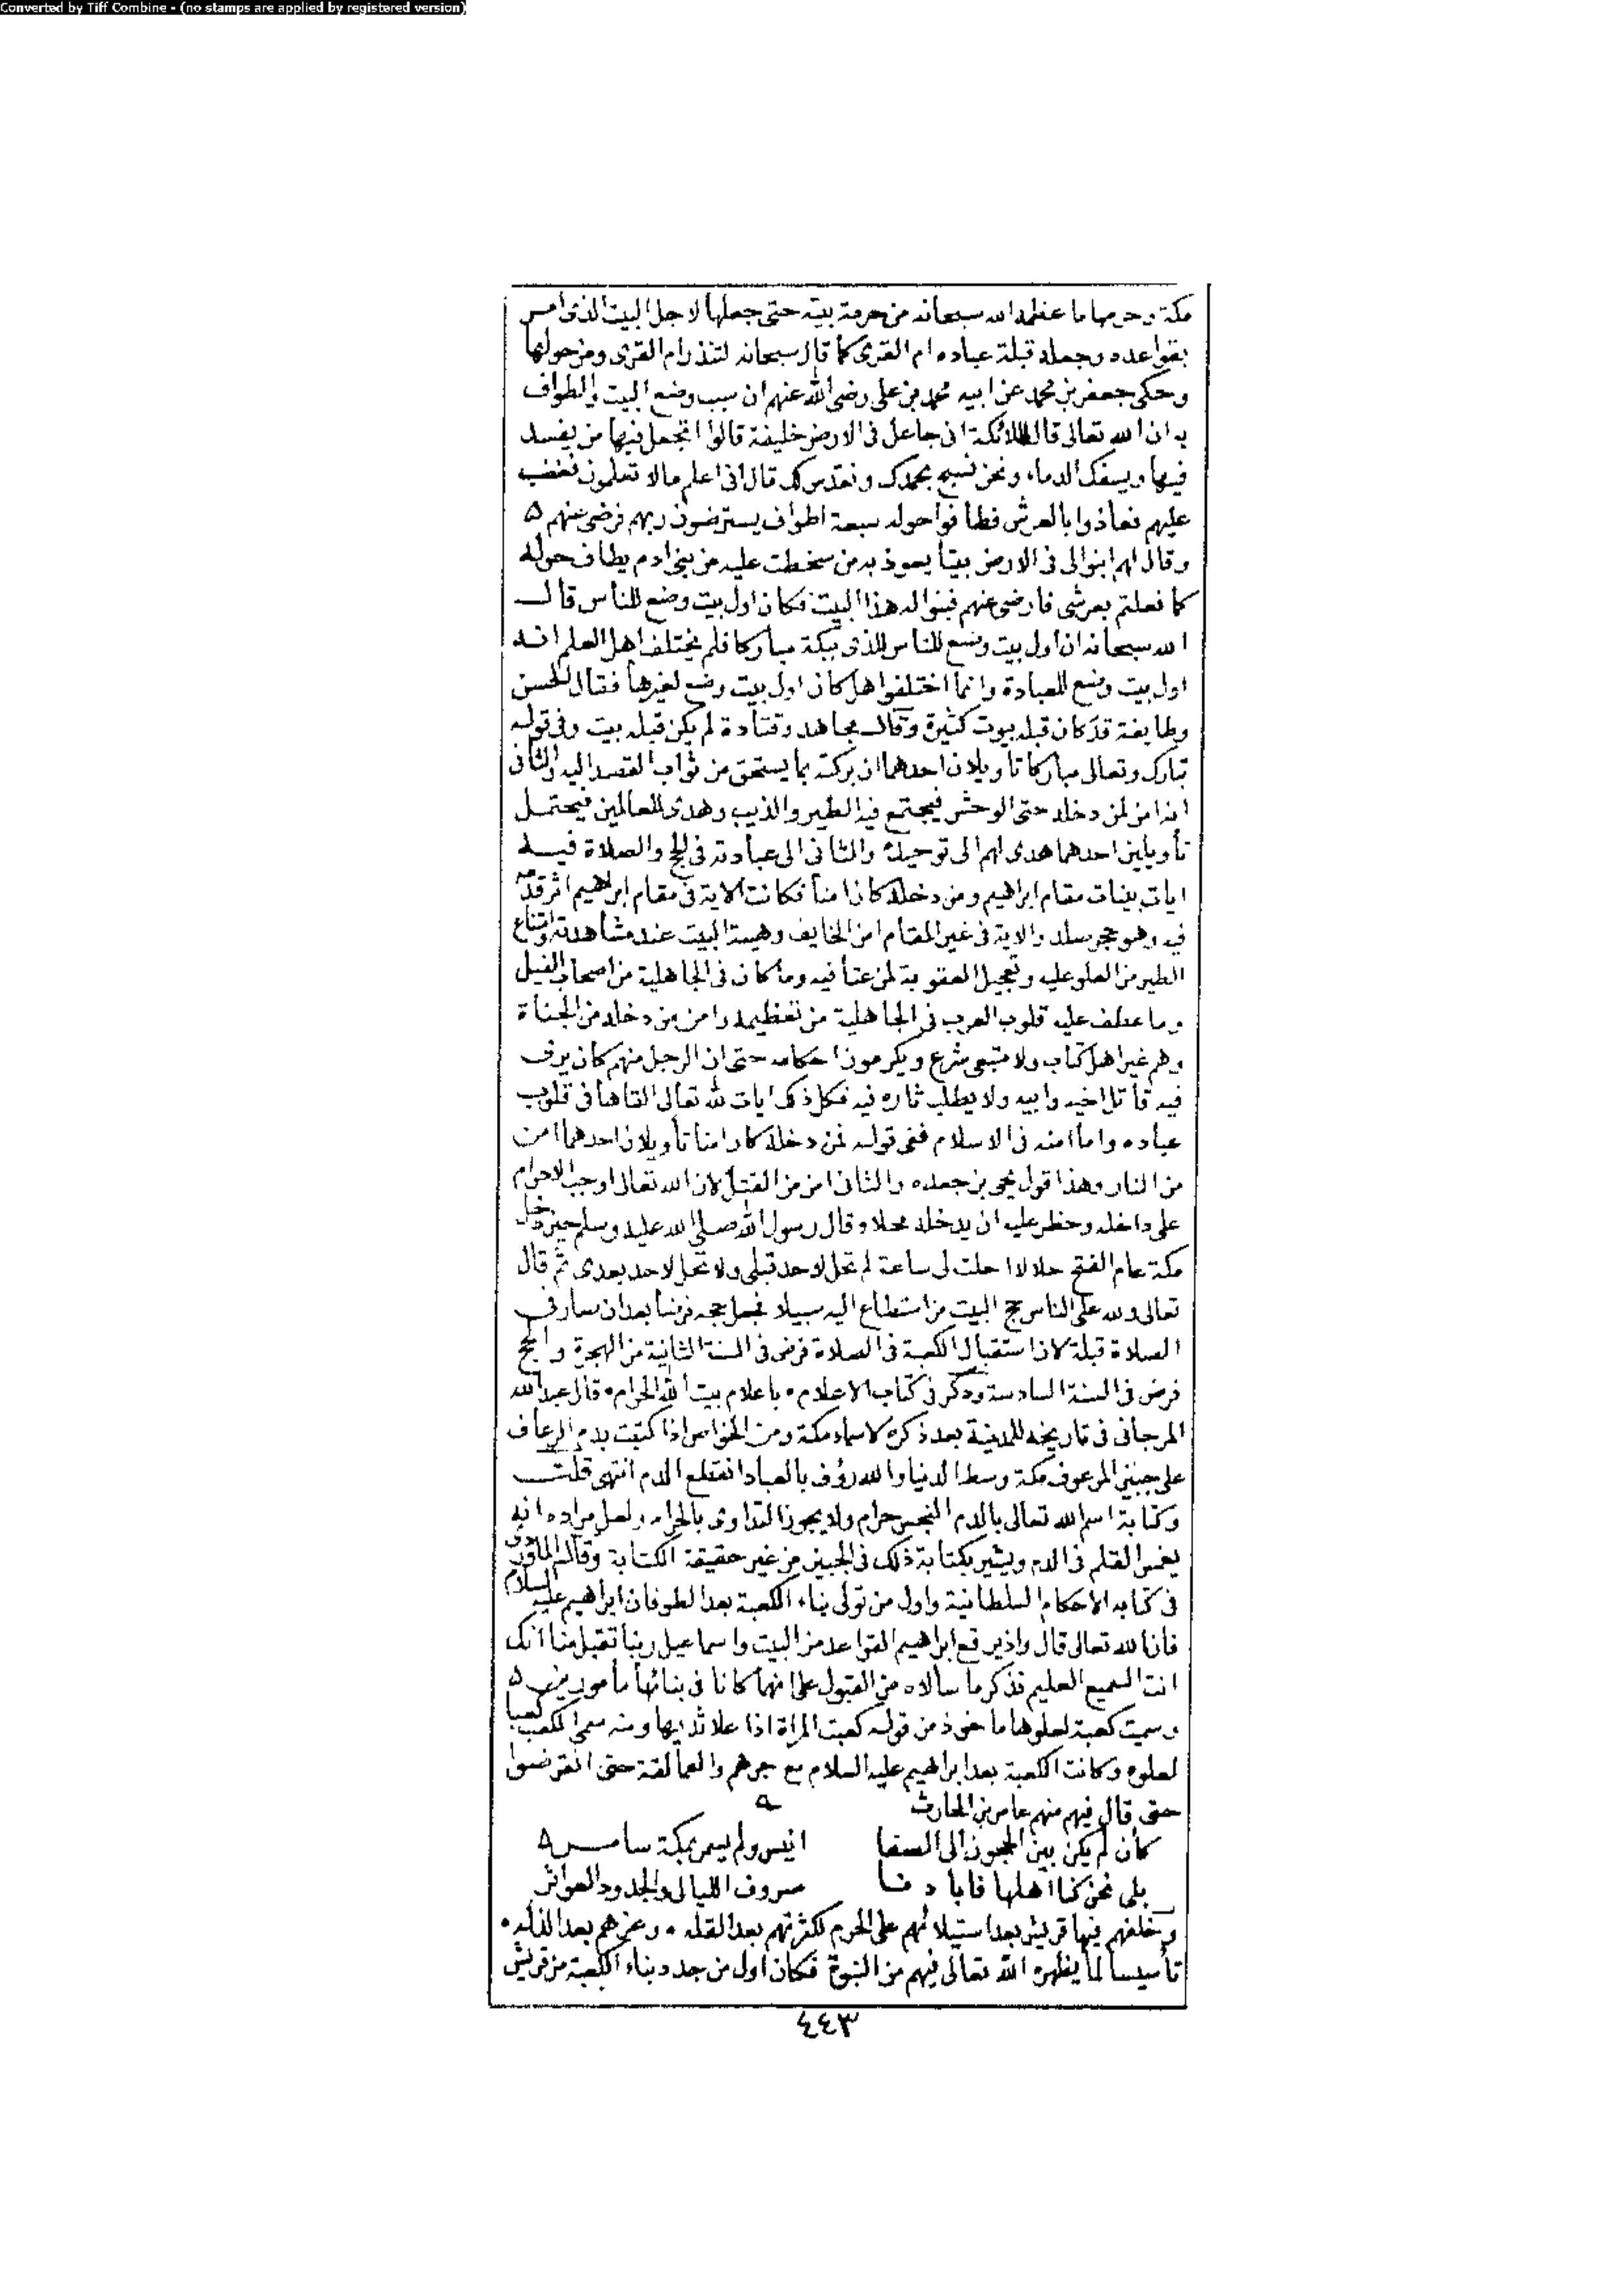 Converted by Tiff Combine - (no stamps are applied by registered version)
مكة وحرمها ما عظمه الله سبحانه من حرمة بيته حتى جعلها لاجل البيت الذى امر
بقواعده وجعله قبلة عباده ام القرى كما قال سبحانه لتنذر ام القرى ومن حولها
وحكى جعفر بن محمد عن ابيه محمد بن على رضى الله عنهم ان سبب وضع البيت والطواف
به ان الله تعالى قال للملائكة انى جاعل فى الارض خليفة قالوا اتجعل فيها من يفسد
فيها ويسفك الدماء ونحن نسبح بحمدك ونقدس لك قال انى اعلم مالا تعلمون فغضب
عليهم فعاذوا بالعرش فطافوا حوله سبعة اطواف يسترضون ربهم فرضى عنهم ه
وقال لهم ابنوا لى فى الارض بيتا يعوذ به من سخطت عليه من بنى ادم يطاف حوله
كما فعلتم بعرشى فارضى عنهم فبنوا له هذا البيت فكان اول بيت وضع للناس قال
الله سبحانه ان اول بيت وضع للناس للذى ببكة مباركا فلم يختلف اهل العلم انه
اول بيت وضع للعبادة وانما اختلفوا هل كان اول بيت وضع لغيرها فقال الحسن
وطايفة قد كان قبله بيوت كثيرة وقال مجاهد وقتادة لم يكن قبله بيت وفى قوله
تبارك وتعالى مباركا تاويلان احدهما ان بركته بما يستحق من ثواب القصد اليه والثانى
انه امن لمن دخله حتى الوحش فيجتمع فيه الظبى والذيب وهدى للعالمين فيحتمل
تأويلين احدهما هدى لهم الى توحيده والثانى الى عبادته فى الحج والصلاة فيه
ايات بينات مقام ابراهيم ومن دخله كان امنا فكانت الاية فى مقام ابراهيم اثر قدمه
فيه وهو حجر صلد والاية فى غير المقام امن الخايف وهيبة البيت عند مشاهدته وامتناع
الطير من العلو عليه وتعجيل العقوبة لمن عتا فيه وما كان فى الجاهلية من اصحاب الفيل
وما عطف عليه قلوب العرب فى الجاهلية من تعظيمه وامن من دخله من الجناة
وهم غير اهل كتاب ولا متبعى شرع ويكرمون احكامه حتى ان الرجل منهم كان يرى
فيه قاتل اخيه وابيه ولا يطلب ثاره فيه فكل ذلك ايات لله تعالى القاها فى قلوب
عباده واما امنه فى الاسلام ففى قوله لمن دخله كان امنا تأويلان احدهما امن
من النار وهذا قول يحيى بن جعده والثانى امن من القتل لان الله تعالى اوجب الاحرام
على داخله وحظر عليه ان يدخله محلا وقال رسول الله صلى الله عليه وسلم حين دخل
مكة عام الفتح حلالا احلت لى ساعة لم تحل لاحد قبلى ولا تحل لاحد بعدى ثم قال
تعالى ولله على الناس حج البيت من استطاع اليه سبيلا فجعل حجه فرضا بعد ان صار فى
الصلاة قبلة لان استقبال الكعبة فى الصلاة فرض فى السنة الثانية من الهجرة والحج
فرض فى السنة السادسة وذكر فى كتاب الاعلام باعلام بيت الله الحرام قال عبد الله
المرجانى فى تاريخه للمدينة بعد ذكره لاسماء مكة ومن الخواص اذا كتبت بدم الرعاف
على جبين المرعوف مكة وسط الدنيا والله رؤف بالعباد انقطع الدم انتهى قلت
وكتابة اسم الله تعالى بالدم النجس حرام ولا يجوز التداوى بالحرام ولعل مراده انه
يغمس القلم فى الدم ويشير بكتابة ذلك فى الجبين من غير حقيقة الكتابة وقال الماوردى
فى كتابه الاحكام السلطانية واول من تولى بناء الكعبة بعد الطوفان ابراهيم عليه السلام
فان الله تعالى قال واذ يرفع ابراهيم القواعد من البيت واسماعيل ربنا تقبل منا انك
انت السميع العليم فذكر ما سالاه من القبول على انهما كانا فى بنائها مأمورين ه
وسميت كعبة لعلوها ماخوذ من قوله كعبت المراة اذا علا ثديها ومنه سمى الكعب كعبا
لعلوه وكانت الكعبة بعد ابراهيم عليه السلام مع جرهم والعمالقة حتى انقرضوا
حتى قال فيهم منهم عامر بن الحارث
كأن لم يكن بين الحجون الى الصفا انيس ولم يسمر بمكة سامر ه
بلى نحن كنا اهلها فابادنا صروف الليالى والجدود العواثر
وخلفهم فيها قريش بعد استيلائهم على الحرم لكثرتهم بعد القله وعزهم بعد الذله
تأسيسا لما يظهره الله تعالى فيهم من النبوة فكان اول من جدد بناء الكعبة من قريش
٤٤٣